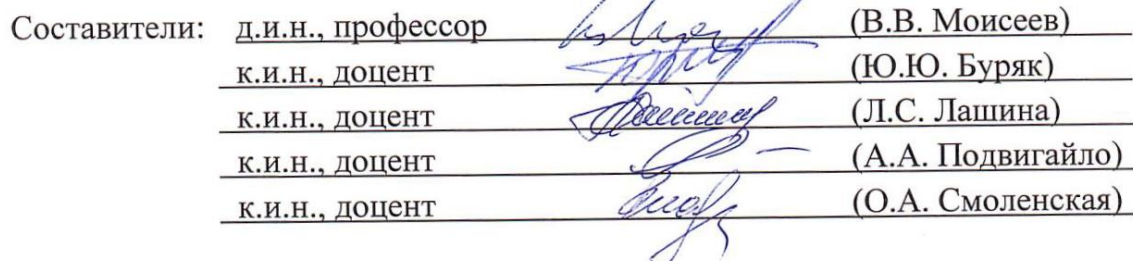 Составители: д.и.н., профессор (В.В. Моисеев)
к.и.н., доцент (Ю.Ю. Буряк)
к.и.н., доцент (Л.С. Лашина)
к.и.н., доцент (А.А. Подвигайло)
к.и.н., доцент (О.А. Смоленская)